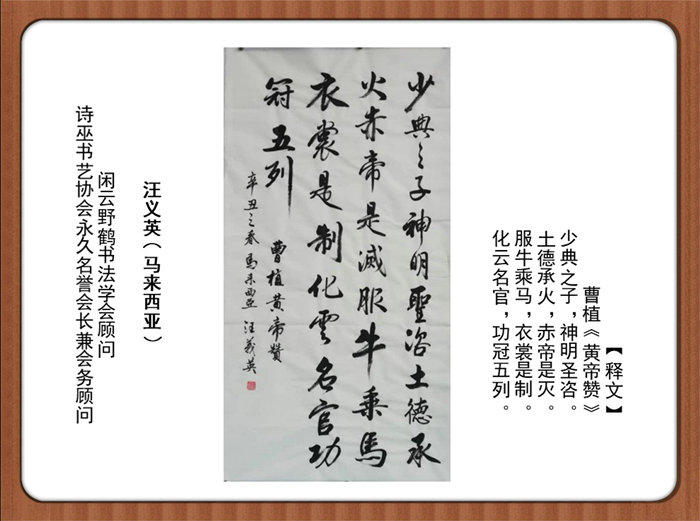 【释文】
曹植《黄帝赞》
少典之子，神明圣咨。
土德承火，赤帝是灭。
服牛乘马，衣裳是制。
化云名官，功冠五列。
少典之子神明聖咨土德承
火赤帝是滅服牛乘馬
衣裳是制化雲名官功
冠五列
曹植黄帝贊
辛丑之春馬来西亚汪義英
汪义英（马来西亚）
闲云野鹤书法学会顾问
诗巫书艺协会永久名誉会长兼会务顾问